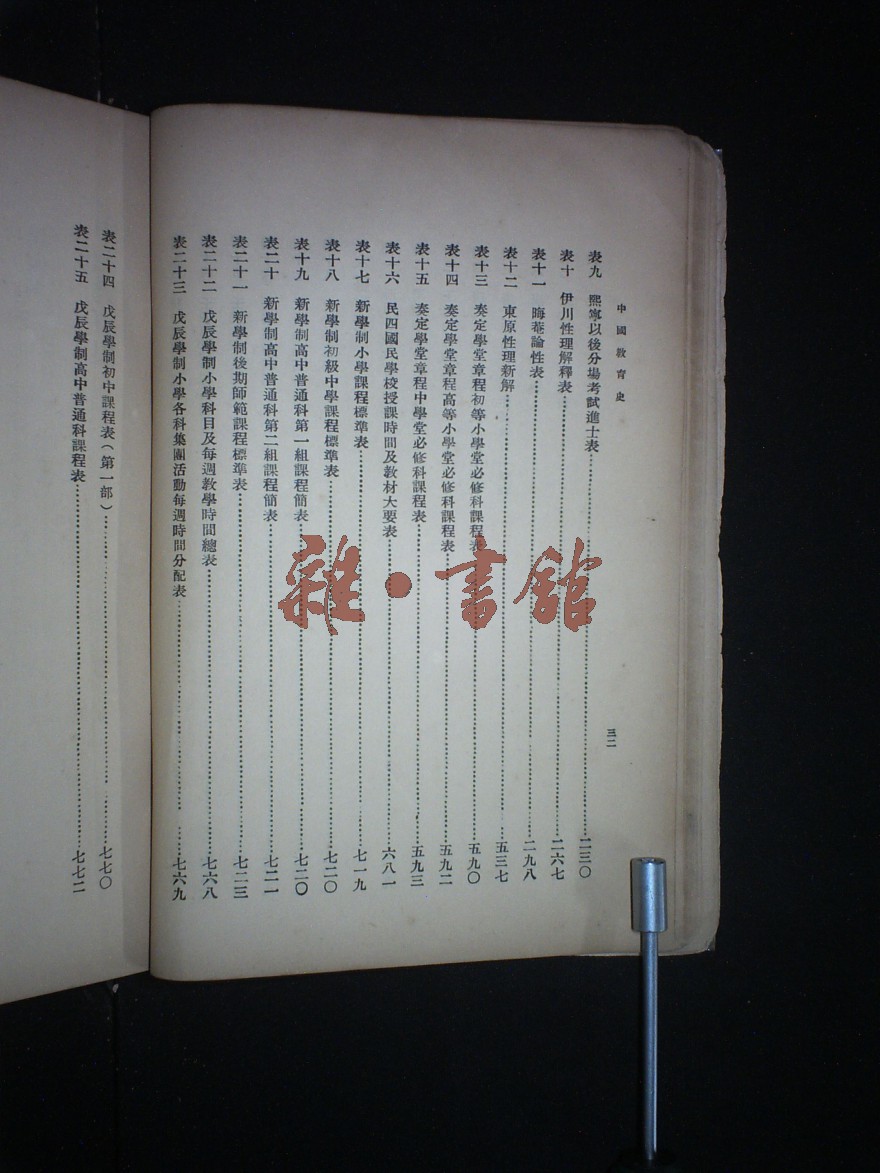 中國教育史
三二
表九　熙寧以後分場考試進士表……二三〇
表十　伊川性理解釋表……二六七
表十一　晦菴論性表……二九八
表十二　東原性理新解……五三七
表十三　奏定學堂章程初等小學堂必修科課程表……五九〇
表十四　奏定學堂章程高等小學堂必修科課程表……五九二
表十五　奏定學堂章程中學堂必修科課程表……五九三
表十六　民四國民學校授課時間及教材大要表……六八一
表十七　新學制小學課程標準表……七一九
表十八　新學制初級中學課程標準表……七二〇
表十九　新學制高中普通科第一組課程簡表……七二〇
表二十　新學制高中普通科第二組課程簡表……七二一
表二十一　新學制後期師範課程標準表……七二三
表二十二　戊辰學制小學科目及每週教學時間總表……七六八
表二十三　戊辰學制小學各科集團活動每週時間分配表……七六九
表二十四　戊辰學制初中課程表（第一部）……七七〇
表二十五　戊辰學制高中普通科課程表……七七二
雜·書館